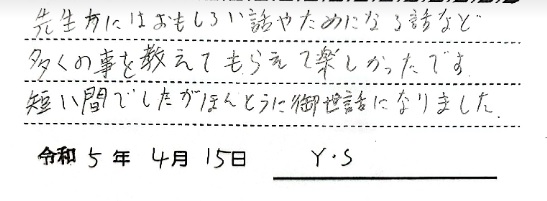 先生方にはおもしろい話やためになる話など
多くの事を教えてもらえて楽しかったです
短い間でしたがほんとうに御世話になりました.
令和5年4月15日 Y・S